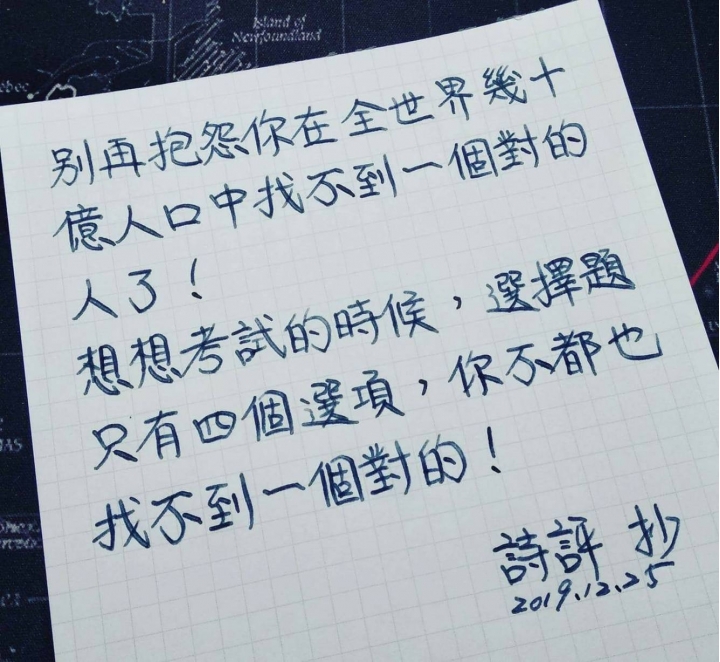 Island of
Newfoundland
別再抱怨你在全世界幾十
億人口中找不到一個對的
人了！
想想考試的時候，選擇題
只有四個選項，你不都也
找不到一個對的！
詩評 抄
2019.12.25